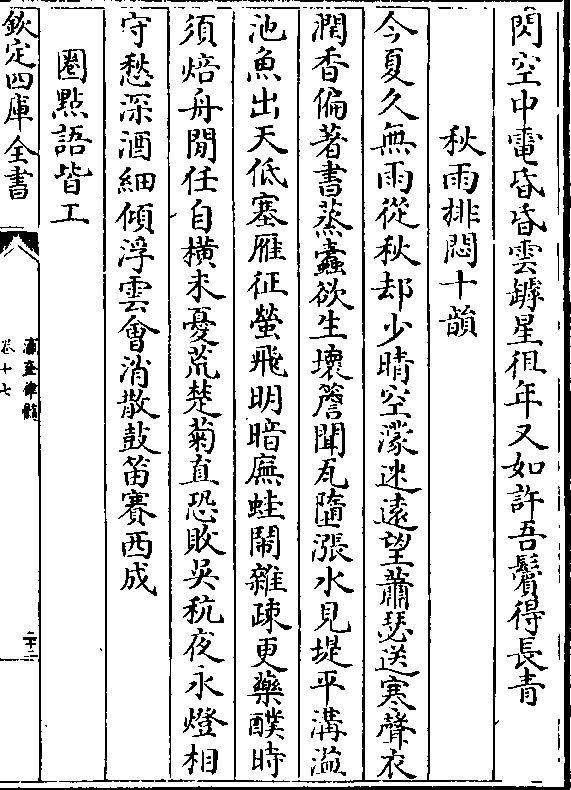 閃空中電昏昏雲罅星徂年又如許吾鬢得長青
秋雨排悶十韻
今夏久無雨從秋却少晴空濛迷逺望蕭瑟送寒聲衣
潤香偏著書蒸蠧欲生壞簷聞瓦墮漲水見堤平溝溢
池魚出天低塞雁征螢飛明暗廡蛙鬧雜疎更藥醭時
須焙舟閒任自横未憂荒楚菊直恐敗吳秔夜永燈相
守愁深酒細傾浮雲會消散鼓笛賽西成
圏點語皆工
欽定四庫全書
瀛奎律髓
卷十七
二十二